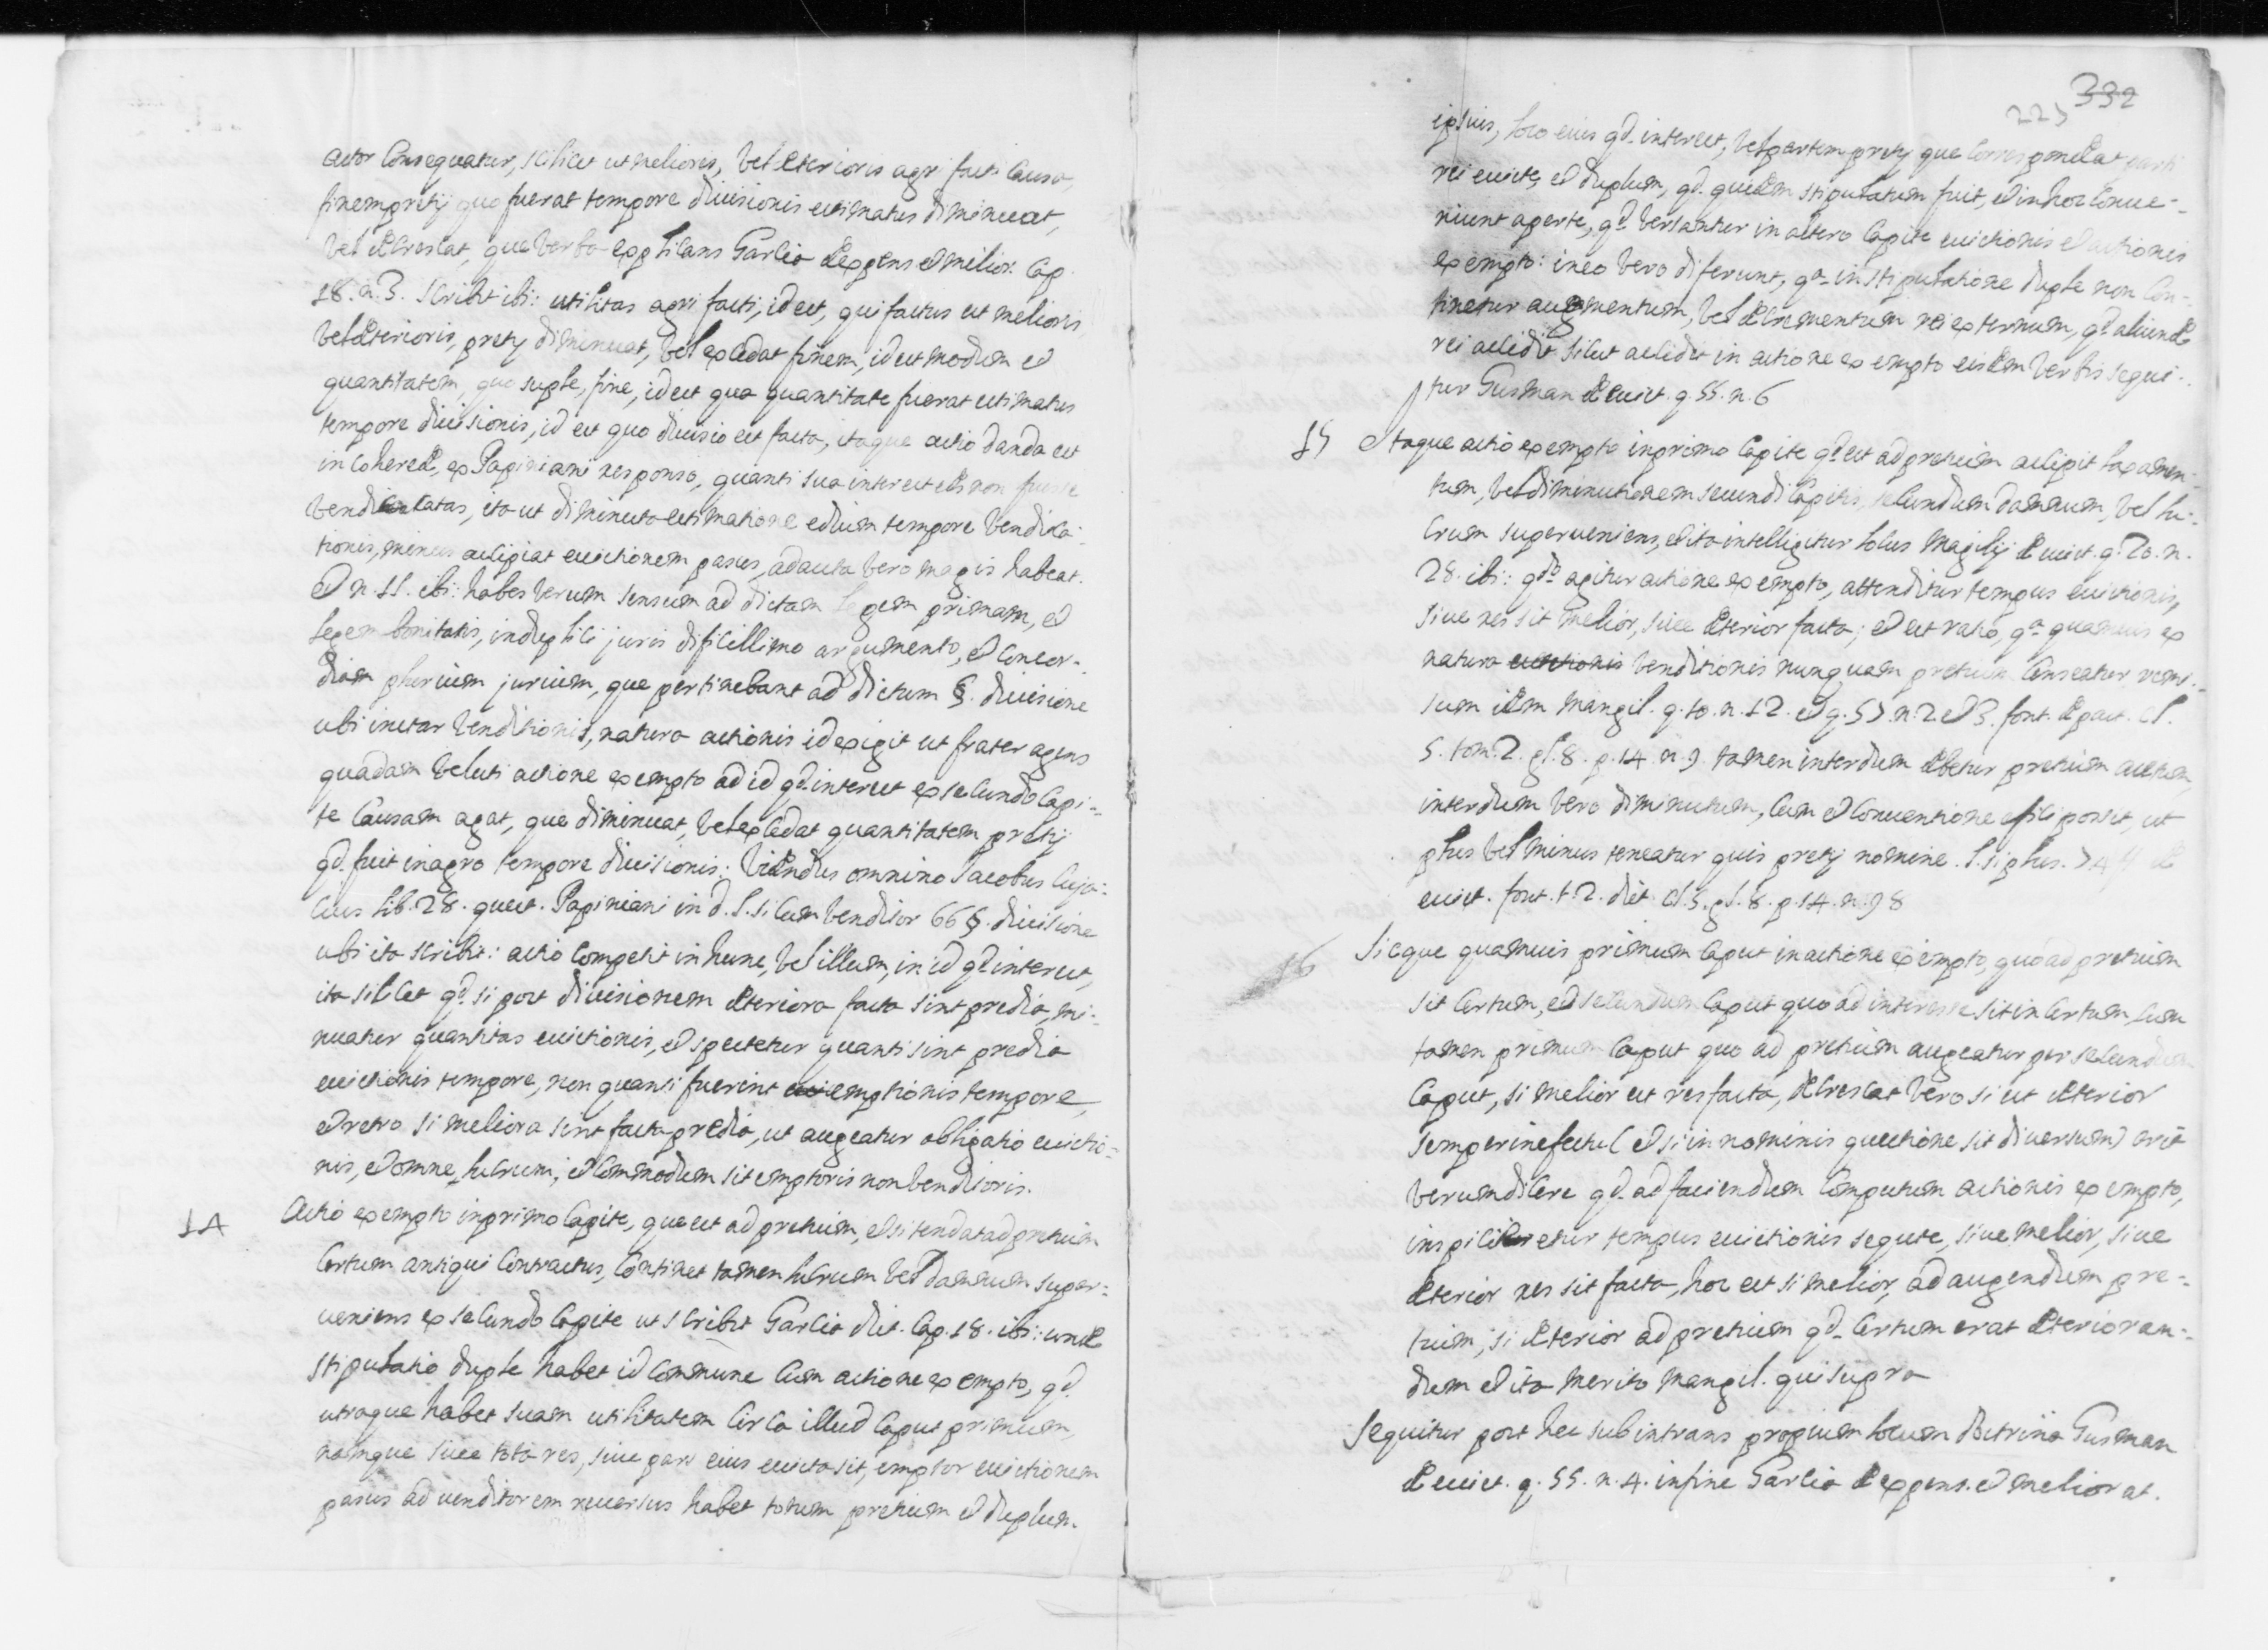 actor Consequatur, scilicet ut melioris, vel deterioris agri facti causa,
finem pretij quo fuerat tempore divisionis estimatus diminuat,
vel decrescat, que verba explicans Garcia de expens et melior. Cap.
18. n. 3. scribit ibi: utilitas agri facti, id est, qui factus est melioris
vel deterioris, pretij diminuat, vel excedat finem, id est modum et
quantitatem, quo suple, fine, id est qua quantitate fuerat estimatus
tempore divisionis, id est quo divisio est facta, itaque actio danda est
in coherede, ex Papiniani responso, quanti sua interest edes non fuisse
vendicatas, ita ut diminuta estimatione edium tempore vendica-
tionis, minus accipiat evictionem passus, adaucta vero magis habeat.
et n. 11. ibi: habes verum sensum ad dictam legem primam, et
legem bonitatis, in duplici juris dificillimo argumento, et concor-
diam plurium jurium, que pertinebant ad dictum §. divisione
ubi instar venditionis, natura actionis id exigit ut frater agens
quadam veluti actione ex empto ad id qd. interest ex secundo capi-
te Causam agat, que diminuat, vel excedat quantitatem pretij
qd. fuit in agro tempore divisionis: Videndus omnino Jacobus Cuja-
cius lib. 28. quest. Papiniani in d. l. si cum venditor 66 §. divisione
ubi ita scribit: actio competit in hunc, vel illum, in id qd. interest,
ita scilicet qd. si post divisionem deteriora facta sint predia, mi-
nuatur quantitas evictionis, et spectetur quanti sint predia
evictionis tempore, non quanti fuerint emptionis tempore,
et retro si meliora sint facta predia, ut augeatur obligatio evictio-
nis, et omne lucrum, et commodum sit emptoris non venditoris.
14 Actio ex empto in primo Capite, que est ad pretium, etsi tendat ad pretium
certum antiqui Contractus, Continet tamen lucrum vel damnum super-
veniens ex secundo Capite ut scribit Garcia dict. Cap. 18. ibi: unde
stipulatio duple habet id commune cum actione ex empto, qd.
utraque habet suam utilitatem circa illud Caput primum,
namque sive tota res, sive pars eius evicta sit, emptor evictionem
passus ad venditorem reversus habet totum pretium et duplum
332
223
ipsius, loco eius qd. interest, vel partem pretij que Correspondeat parti
rei evicte, et duplum, qd. quidem stipulatum fuit, et in hoc Conve-
niunt aperte, qd. versantur in altero Capite evictionis et actionis
ex empto: in eo vero diferunt, qa. in stipulatione duple non Con-
tinetur augmentum, vel decrementum rei externum, qd. aliunde
rei accidit, sicut accidit in actione ex empto eisdem verbis sequi-
tur Gusman de evict. q. 55. n. 6
15 Itaque actio ex empto in primo Capite qd. est ad pretium accipit laxamen-
tum, vel diminutionem secundi Capitis, secundum damnum, vel lu-
crum superveniens, et ita intelligitur locus Mangilij de evict. q. 20. n.
28. ibi: qdo agitur actione ex empto, attenditur tempus evictionis,
sive res sit melior, sive deterior facta; et est ratio, qa. quamvis ex
natura evictionis venditionis nunquam pretium Censeatur remi-
ssum idem Mangil. q. 10. n. 12. et q. 57. n. 2 et 3. font. de pact. cl.
5. tom. 2. gl. 8. p. 14. n. 9. tamen interdum debetur pretium auctum,
interdum vero diminutum, Cum et Conventione efici possit, ut
plus vel minus teneatur quis pretij nomine. l. si plus. 74 ff de
evict. font. t. 2. dict. cl. 5. gl. 8. p. 14. n. 98
16 Sicque quamvis primum Caput in actione ex empto, quo ad pretium
sit Certum, et secundum Caput quo ad interesse sit incertum, Cum
tamen primum Caput quo ad pretium augeatur per secundum
Caput, si melior est res facta, decrescat vero si est deterior
semper in efectu (etsi in nominis questione sit diversum) erit
verum dicere qd. ad faciendum Computum actionis ex empto,
inspicietur tempus evictionis sequte, sive melior, sive
deterior res sit facta, hoc est si melior, ad augendum pre-
tium, si deterior ad pretium qd. Certum erat deterioran-
dum et ita merito Mangil. qui supra
Sequitur post hec subintrans propium locum doctrina Gusman
de evict. q. 55. n. 4. in fine Garcia de expens. et meliorat.